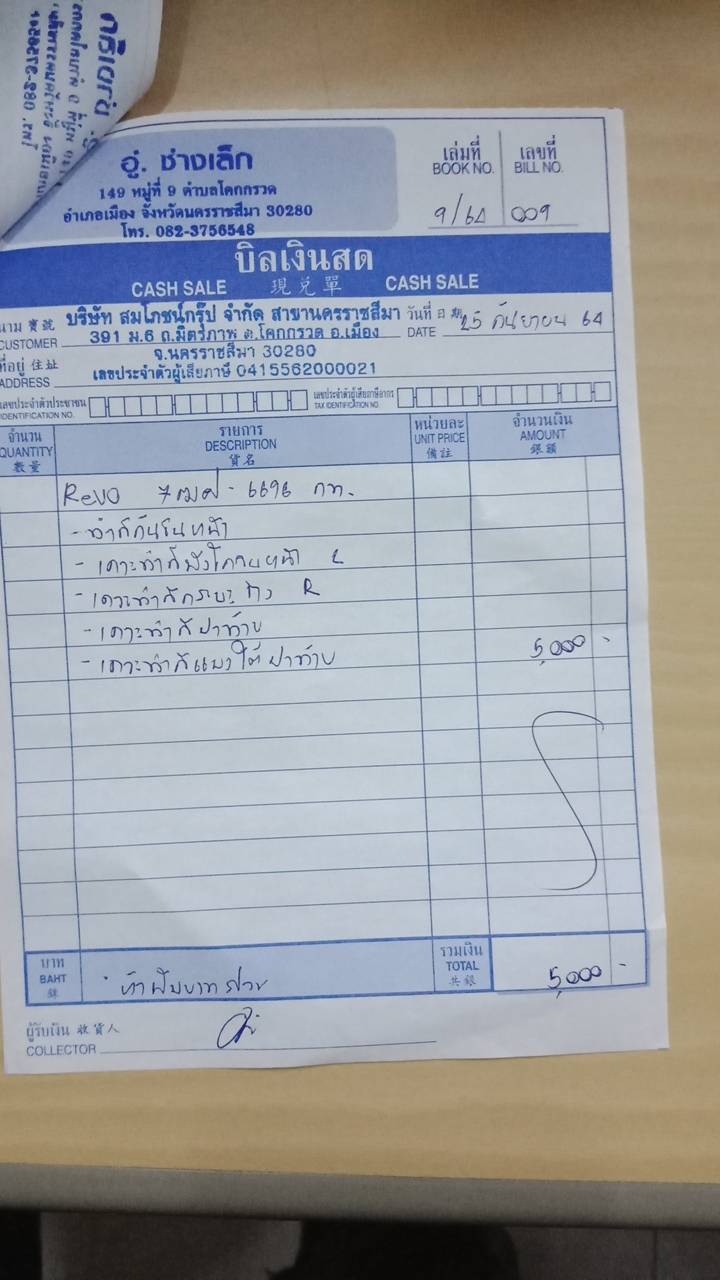 อู่. ช่างเล็ก
149 หมู่ที่ 9 ตำบลโคกกรวด
อำเภอเมือง จังหวัดนครราชสีมา 30280
โทร. 082-3756548
เล่มที่ เลขที่
BOOK NO. BILL NO.
9/64 009
บิลเงินสด
CASH SALE 現兑單 CASH SALE
นาม 寳號 บริษัท สมโภชน์กรุ๊ป จำกัด สาขานครราชสีมา วันที่ 日期 25 กันยายน 64
CUSTOMER 391 ม.6 ถ.มิตรภาพ ต.โคกกรวด อ.เมือง DATE
ที่อยู่ 住址 จ.นครราชสีมา 30280
ADDRESS เลขประจำตัวผู้เสียภาษี 0415562000021
เลขประจำตัวประชาชน เลขประจำตัวผู้เสียภาษีอากร
IDENTIFICATION NO. TAX IDENTIFICATION NO.
จำนวน รายการ หน่วยละ จำนวนเงิน
QUANTITY DESCRIPTION UNIT PRICE AMOUNT
數量 貨名 備註 銀額
Revo 7ฒศ - 6696 กท.
- ทำสีกันชนหน้า
- เคาะทำสีบังโคลนหน้า L
- เคาะทำสีกระบะข้าง R
- เคาะทำสีฝาท้าย
- เคาะทำสีแผงใต้ฝาท้าย 5,000 -
บาท รวมเงิน
BAHT ห้าพันบาทถ้วน TOTAL 5,000 -
銖 共銀
ผู้รับเงิน 收貨人
COLLECTOR